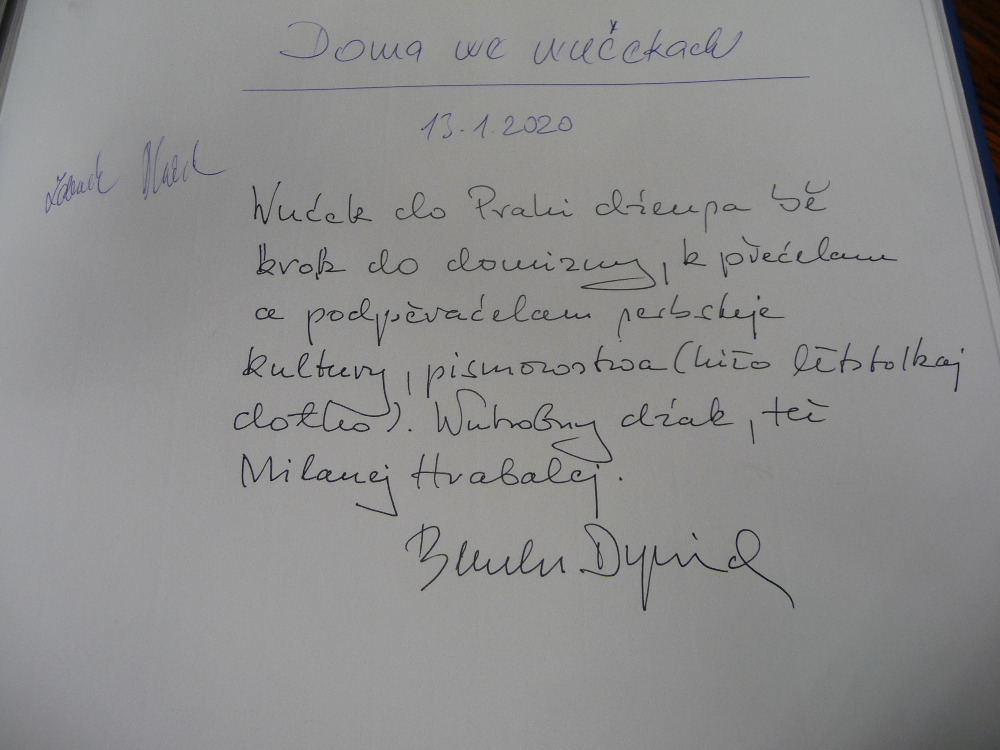 Doma we wučekach
13.1.2020
Wućek do Prahi dźensa bě
krok do domizny, k přećelam
a podpěraćelam serbskeje
kultury, pismowstwa (hižo lětstotkaj
dołho). Wutrobny dźak, tež
Milanej Hrabalej.